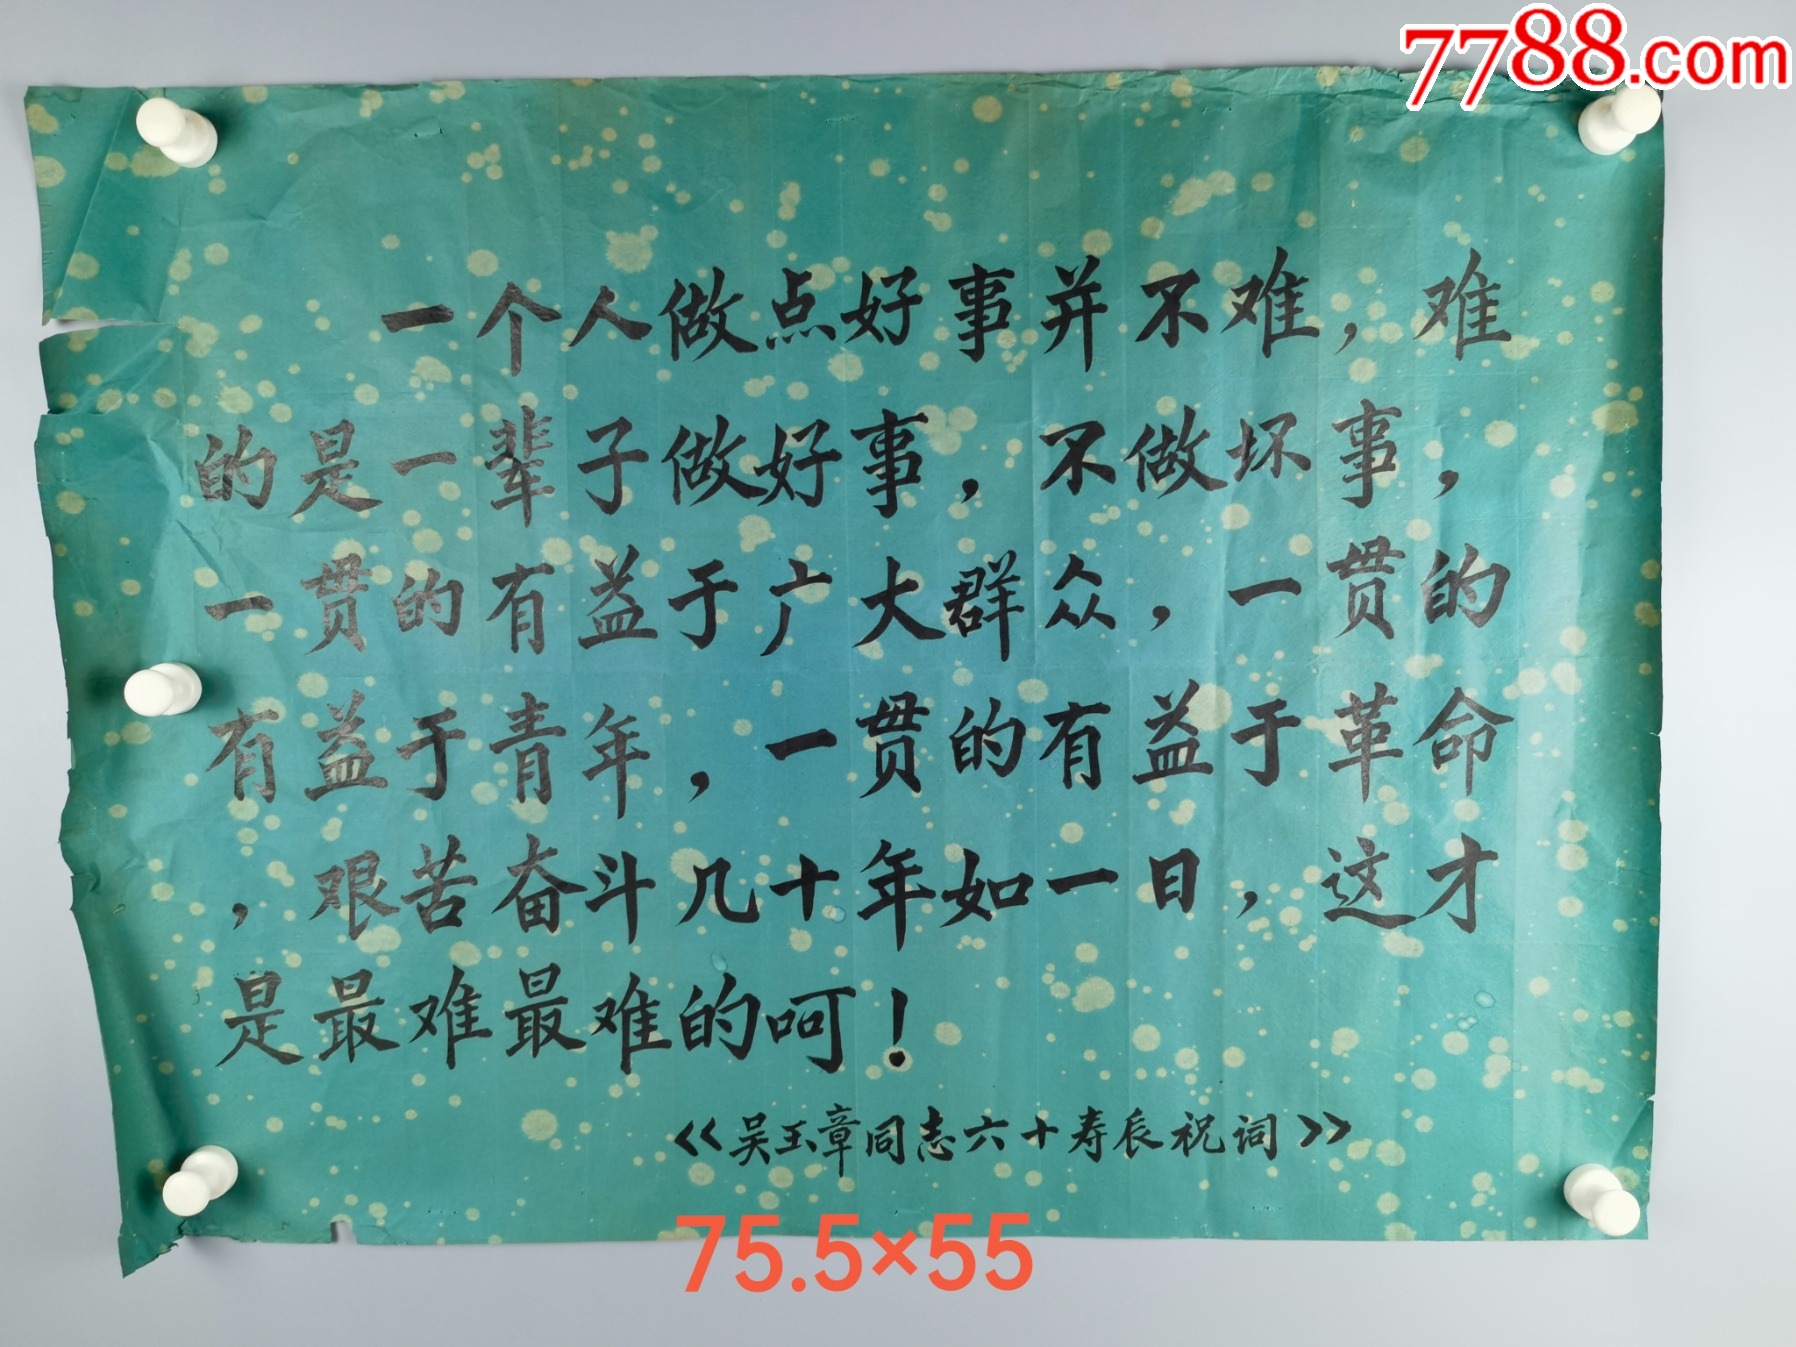 7788.com
一个人做点好事并不难，难
的是一辈子做好事，不做坏事，
一贯的有益于广大群众，一贯的
有益于青年，一贯的有益于革命
，艰苦奋斗几十年如一日，这才
是最难最难的呵！
<<吴玉章同志六十寿辰祝词>>
75.5×55